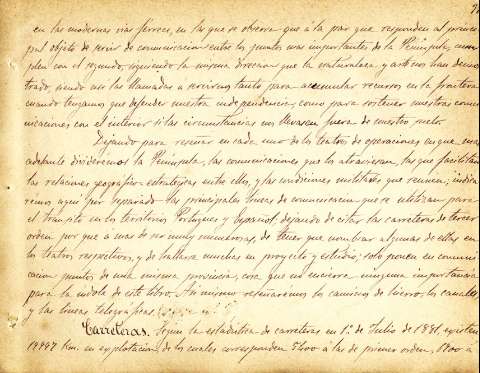 en las modernas vias férreas, en las que se observa que á la par que responden al princi-
pal objeto de servir de comunicacion entre los puntos mas importantes de la Península, cum-
plen con el segundo, siguiendo la misma direccion que la naturaleza y antes nos han demos-
trado, siendo una las llamadas á servirnos tanto para acumular recursos en la frontera
cuando tengamos que defender nuestra independencia, como para sostener nuestras comu-
nicaciones con el interior si las circunstancias nos llevasen fuera de nuestro suelo.
Dejando para reseñar en cada uno de los teatros de operaciones en que mas
adelante dividiremos la Península, las comunicaciones que los atraviesan, las que facilitan
las relaciones geográfico-estratégicas entre ellos, y las condiciones militares que reunen; indica-
remos aquí por separado las principales lineas de comunicacion que se utilizan para
el transito en los territorios Portugues y Español, dejando de citar las carreteras de tercer
orden por que á mas de ser muy numerosas, de tener que nombrar algunas de ellas en
los teatros respectivos, y de hallarse muchas en proyecto y estudio; solo ponen en comuni-
cacion puntos de una misma provincia, cosa que no encierra ninguna importancia
para la indole de este libro. Asi mismo reseñaremos los caminos de hierro, los canales
y las lineas telegraficas.
Carreteras. Segun la estadistica de carreteras en 1º de Julio de 1881, existen
Km. en explotacion, de los cuales corresponden 5400 á las de primer orden, 1700 á